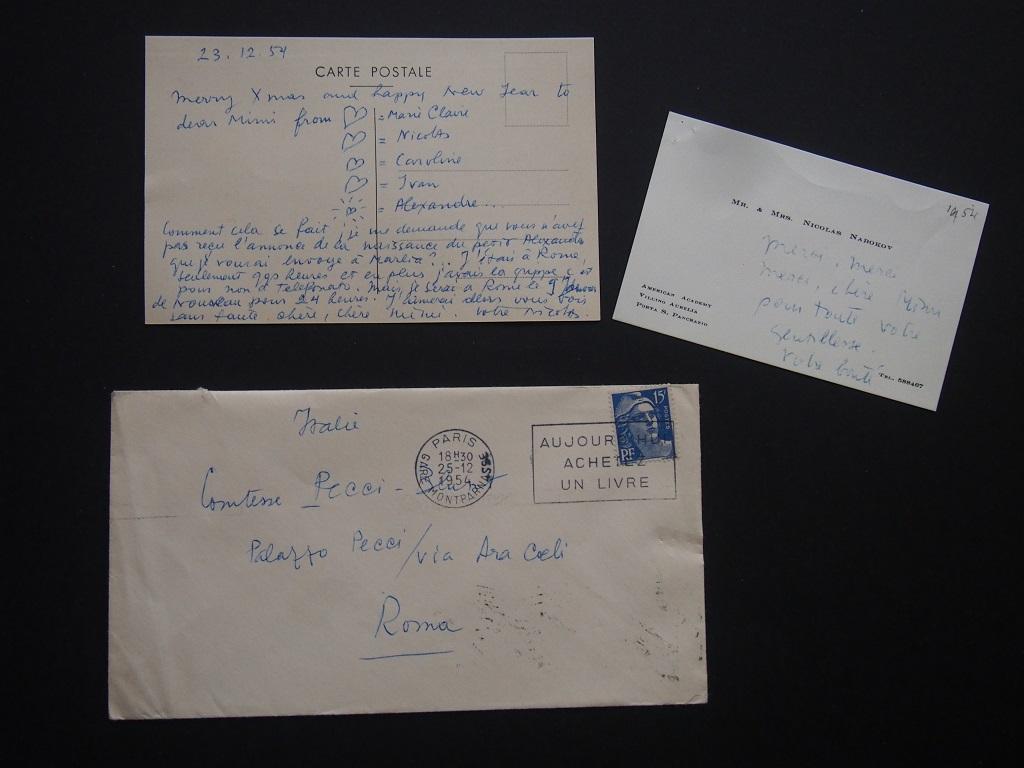 23.12.54
CARTE POSTALE
Merry Xmas and happy New Year to
dear Mimi from
= Marie Claire
= Nicolas
= Caroline
= Ivan
= Alexandre...
Comment cela se fait, je me demande que vous n'avez
pas reçu l'annonce de la naissance du petit Alexandre
que je vous ai envoyé à Marlia?... J'étais à Rome,
seulement heures et en plus j'avais la grippe c. et
pour non à telefonato. Mais je serai à Rome le
de nouveau pour 24 heures. J'aimerai alors vous voir
sans faute chère, chère Mimi. Votre Nicolas.
1954
MR. & MRS. NICOLAS NABOKOV
merci, merci
merci, chère Mimi
pour toute votre
gentillesse.
votre bonté
AMERICAN ACADEMY
VILLINO AURELIA
PORTA S. PANCRAZIO
TEL. 588407
Italie
PARIS
18H30
25-12
1954
GARE MONTPARNASSE
AUJOURD'HUI
ACHETEZ
UN LIVRE
15F
POSTES
RF
Comtesse Pecci-
Palazzo Pecci / via Ara Cœli
Roma